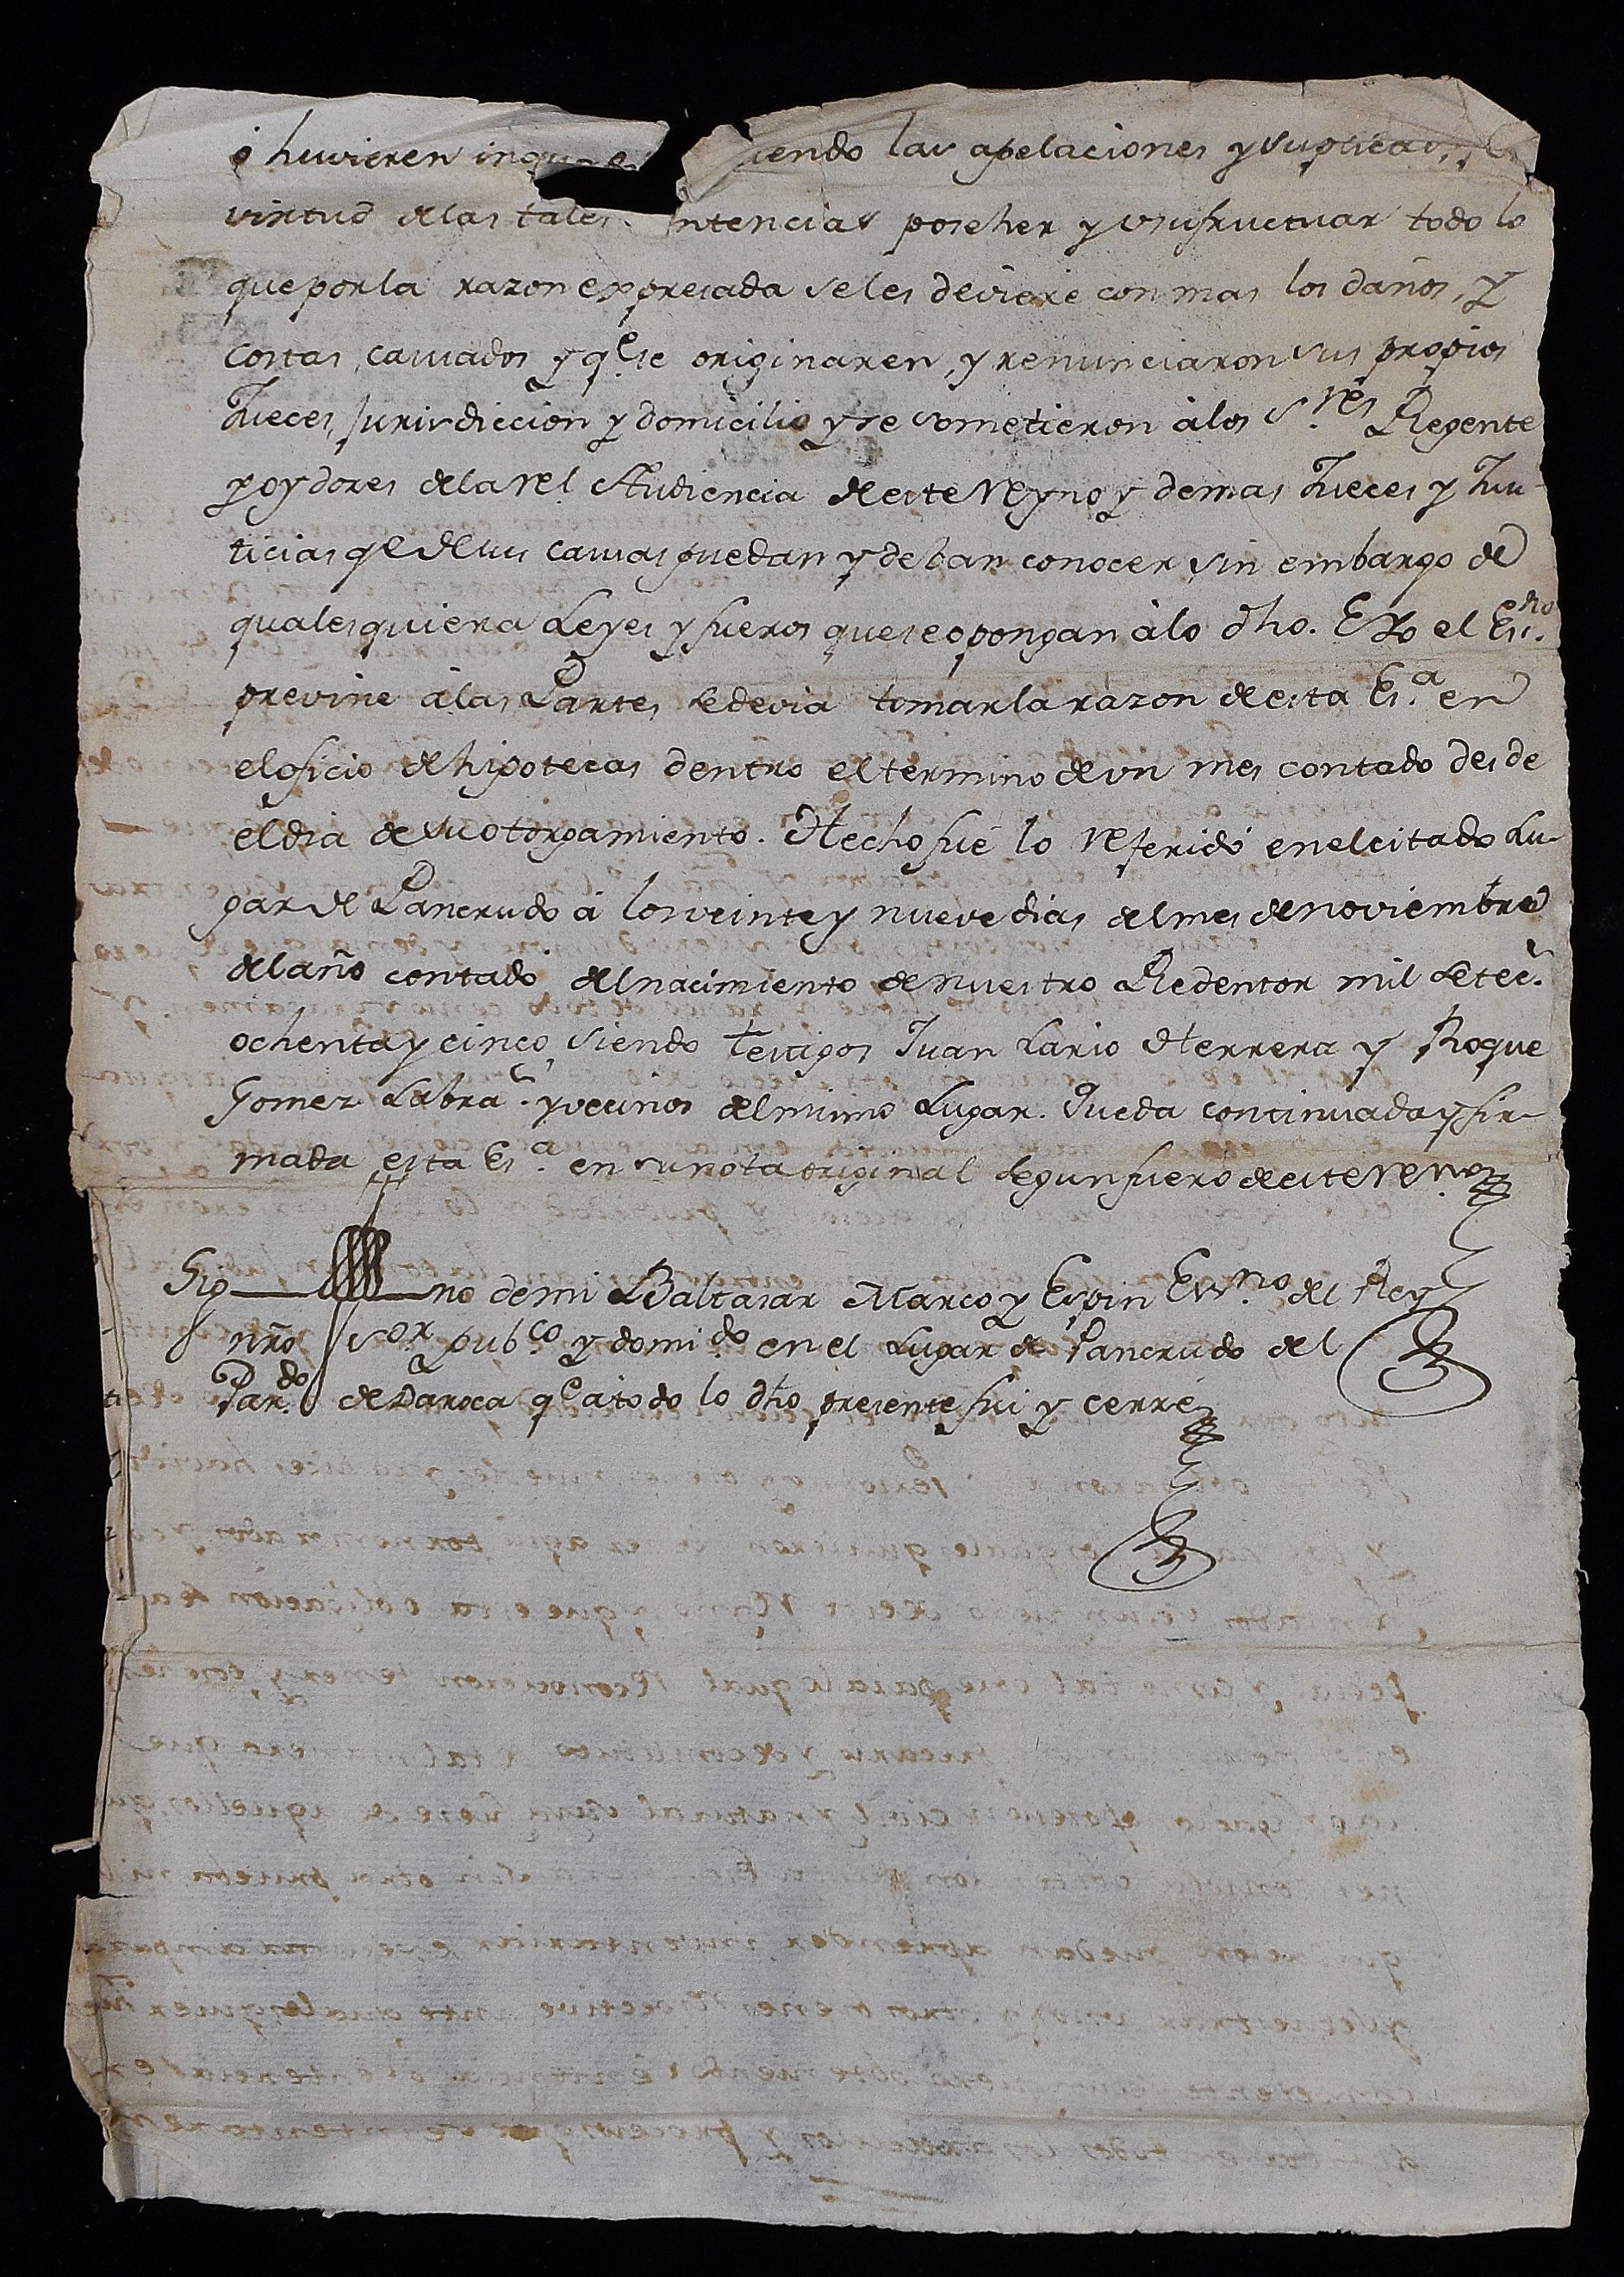 ó huvieren endo las apelaciones y
virtud de las tales ntencias poseher y usufructuar todo lo
que por la razon expresada se les deviere con mas los daños, y
costas, causados y q.e se originaren, y renunciaron sus propios
Jueces, Jurisdiccion y domicilio y se sometieron à los S.res Regente
y oydores de la Rel Audiencia de este Reyno y demas Jueces y Jus-
ticias qe de sus causas puedan y deban conocer sin embargo de
qualesquiera Leyes y fueros que se opongan à lo dho. E Yo el Es.no
previne à las Partes se devia tomar la razon de esta Es.a en
el oficio de hipotecas dentro el termino de un mes contado desde
el dia de su otorgamiento. Hecho fué lo referido en el citado Lu-
gar de Pancrudo á los veinte y nueve dias del mes de noviembre
del año contado del nacimiento de nuestro Redentor mil setec.s
ochenta y cinco, siendo testigos Juan Lario Herrera y Roque
Gomez Labra.s y vecinos del mismo Lugar. Queda continuada y fir-
mada esta Es.a en su nota original segun fuero de este Reyno
Sig no de mi Baltasar Marco y Espin Ess.no del Rey
nr̃o S.or pub.co y domi.do en el Lugar de Pancrudo del
Par.do de Daroca q.e a todo lo dho presente fui y cerré